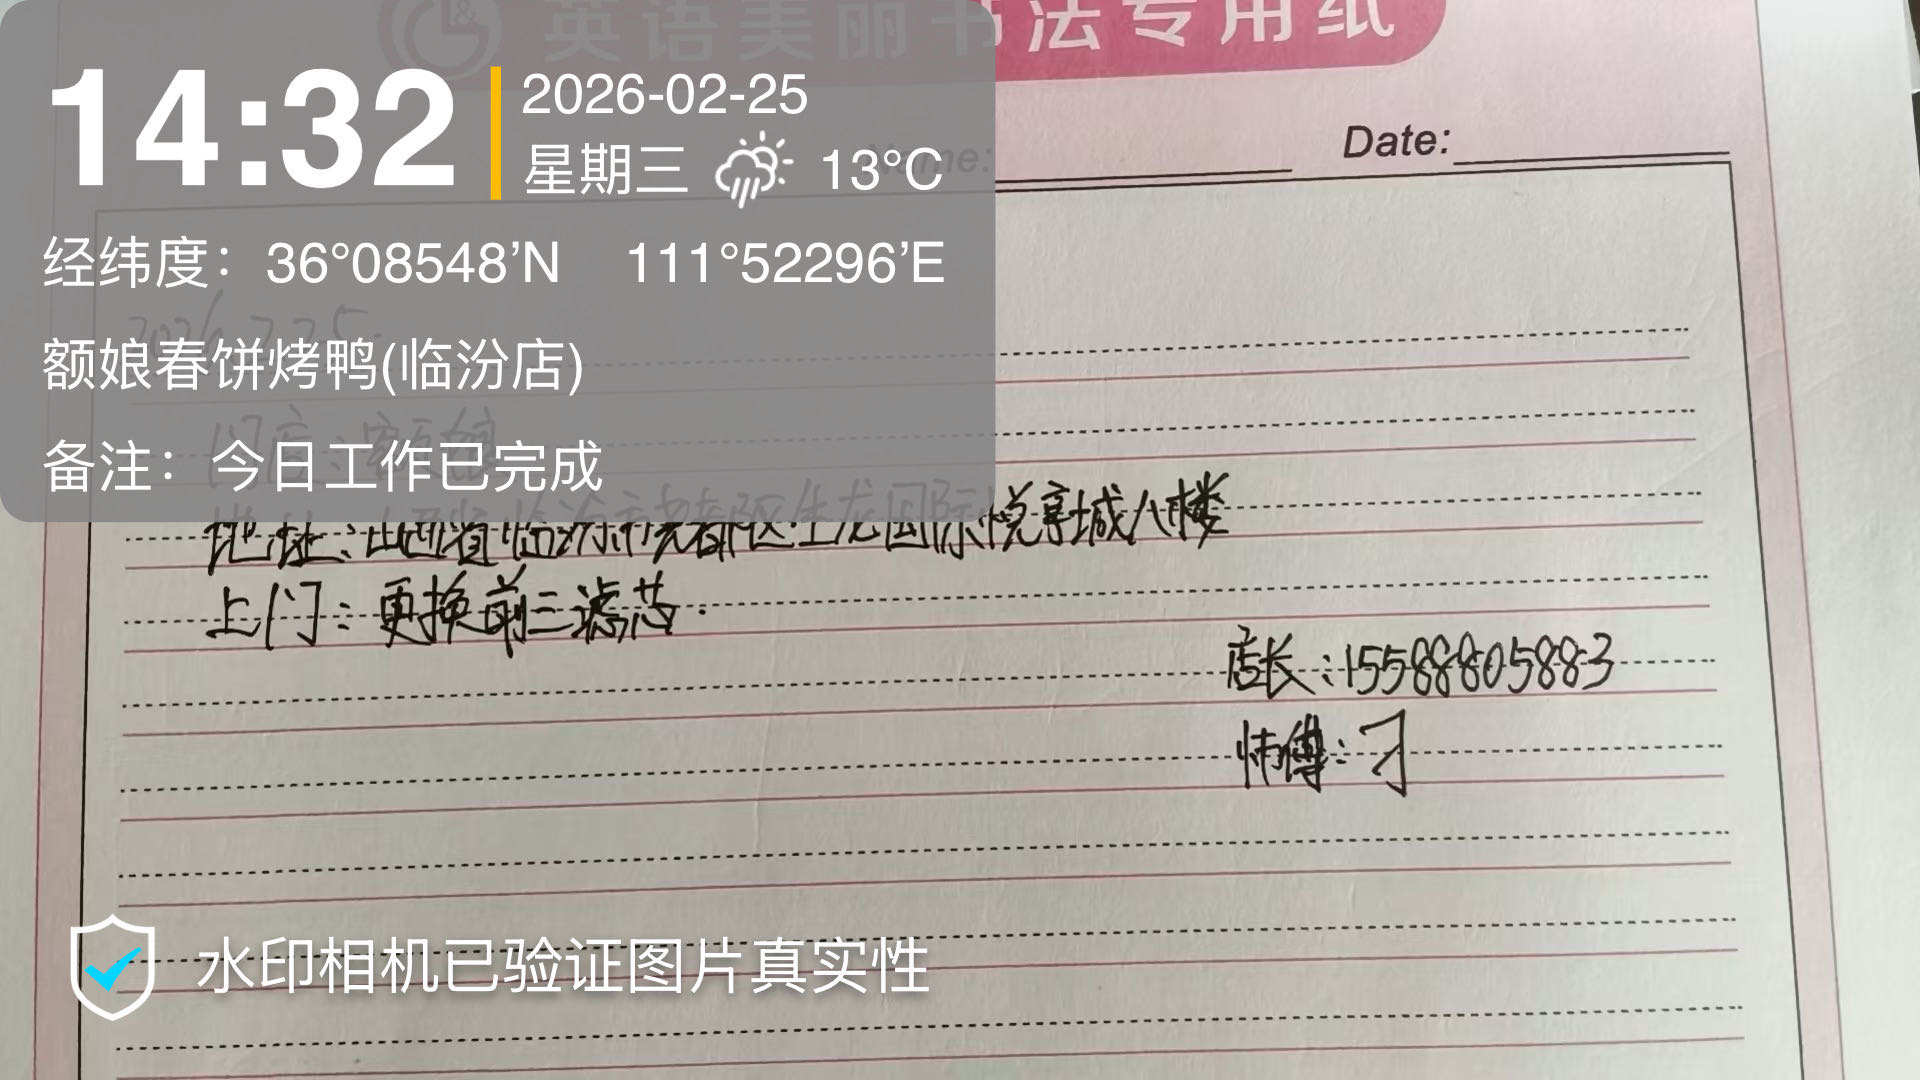 英语美丽书法专用纸
14:32
2026-02-25
星期三 13°C
Name:
Date:
经纬度：36°08548’N 111°52296’E
2026.2.25.
额娘春饼烤鸭(临汾店)
门店：额娘
备注：今日工作已完成
地址：山西省临汾市尧都区生龙国际悦享城八楼
上门：更换前三滤芯.
店长：15588805883
师傅：刁
水印相机已验证图片真实性